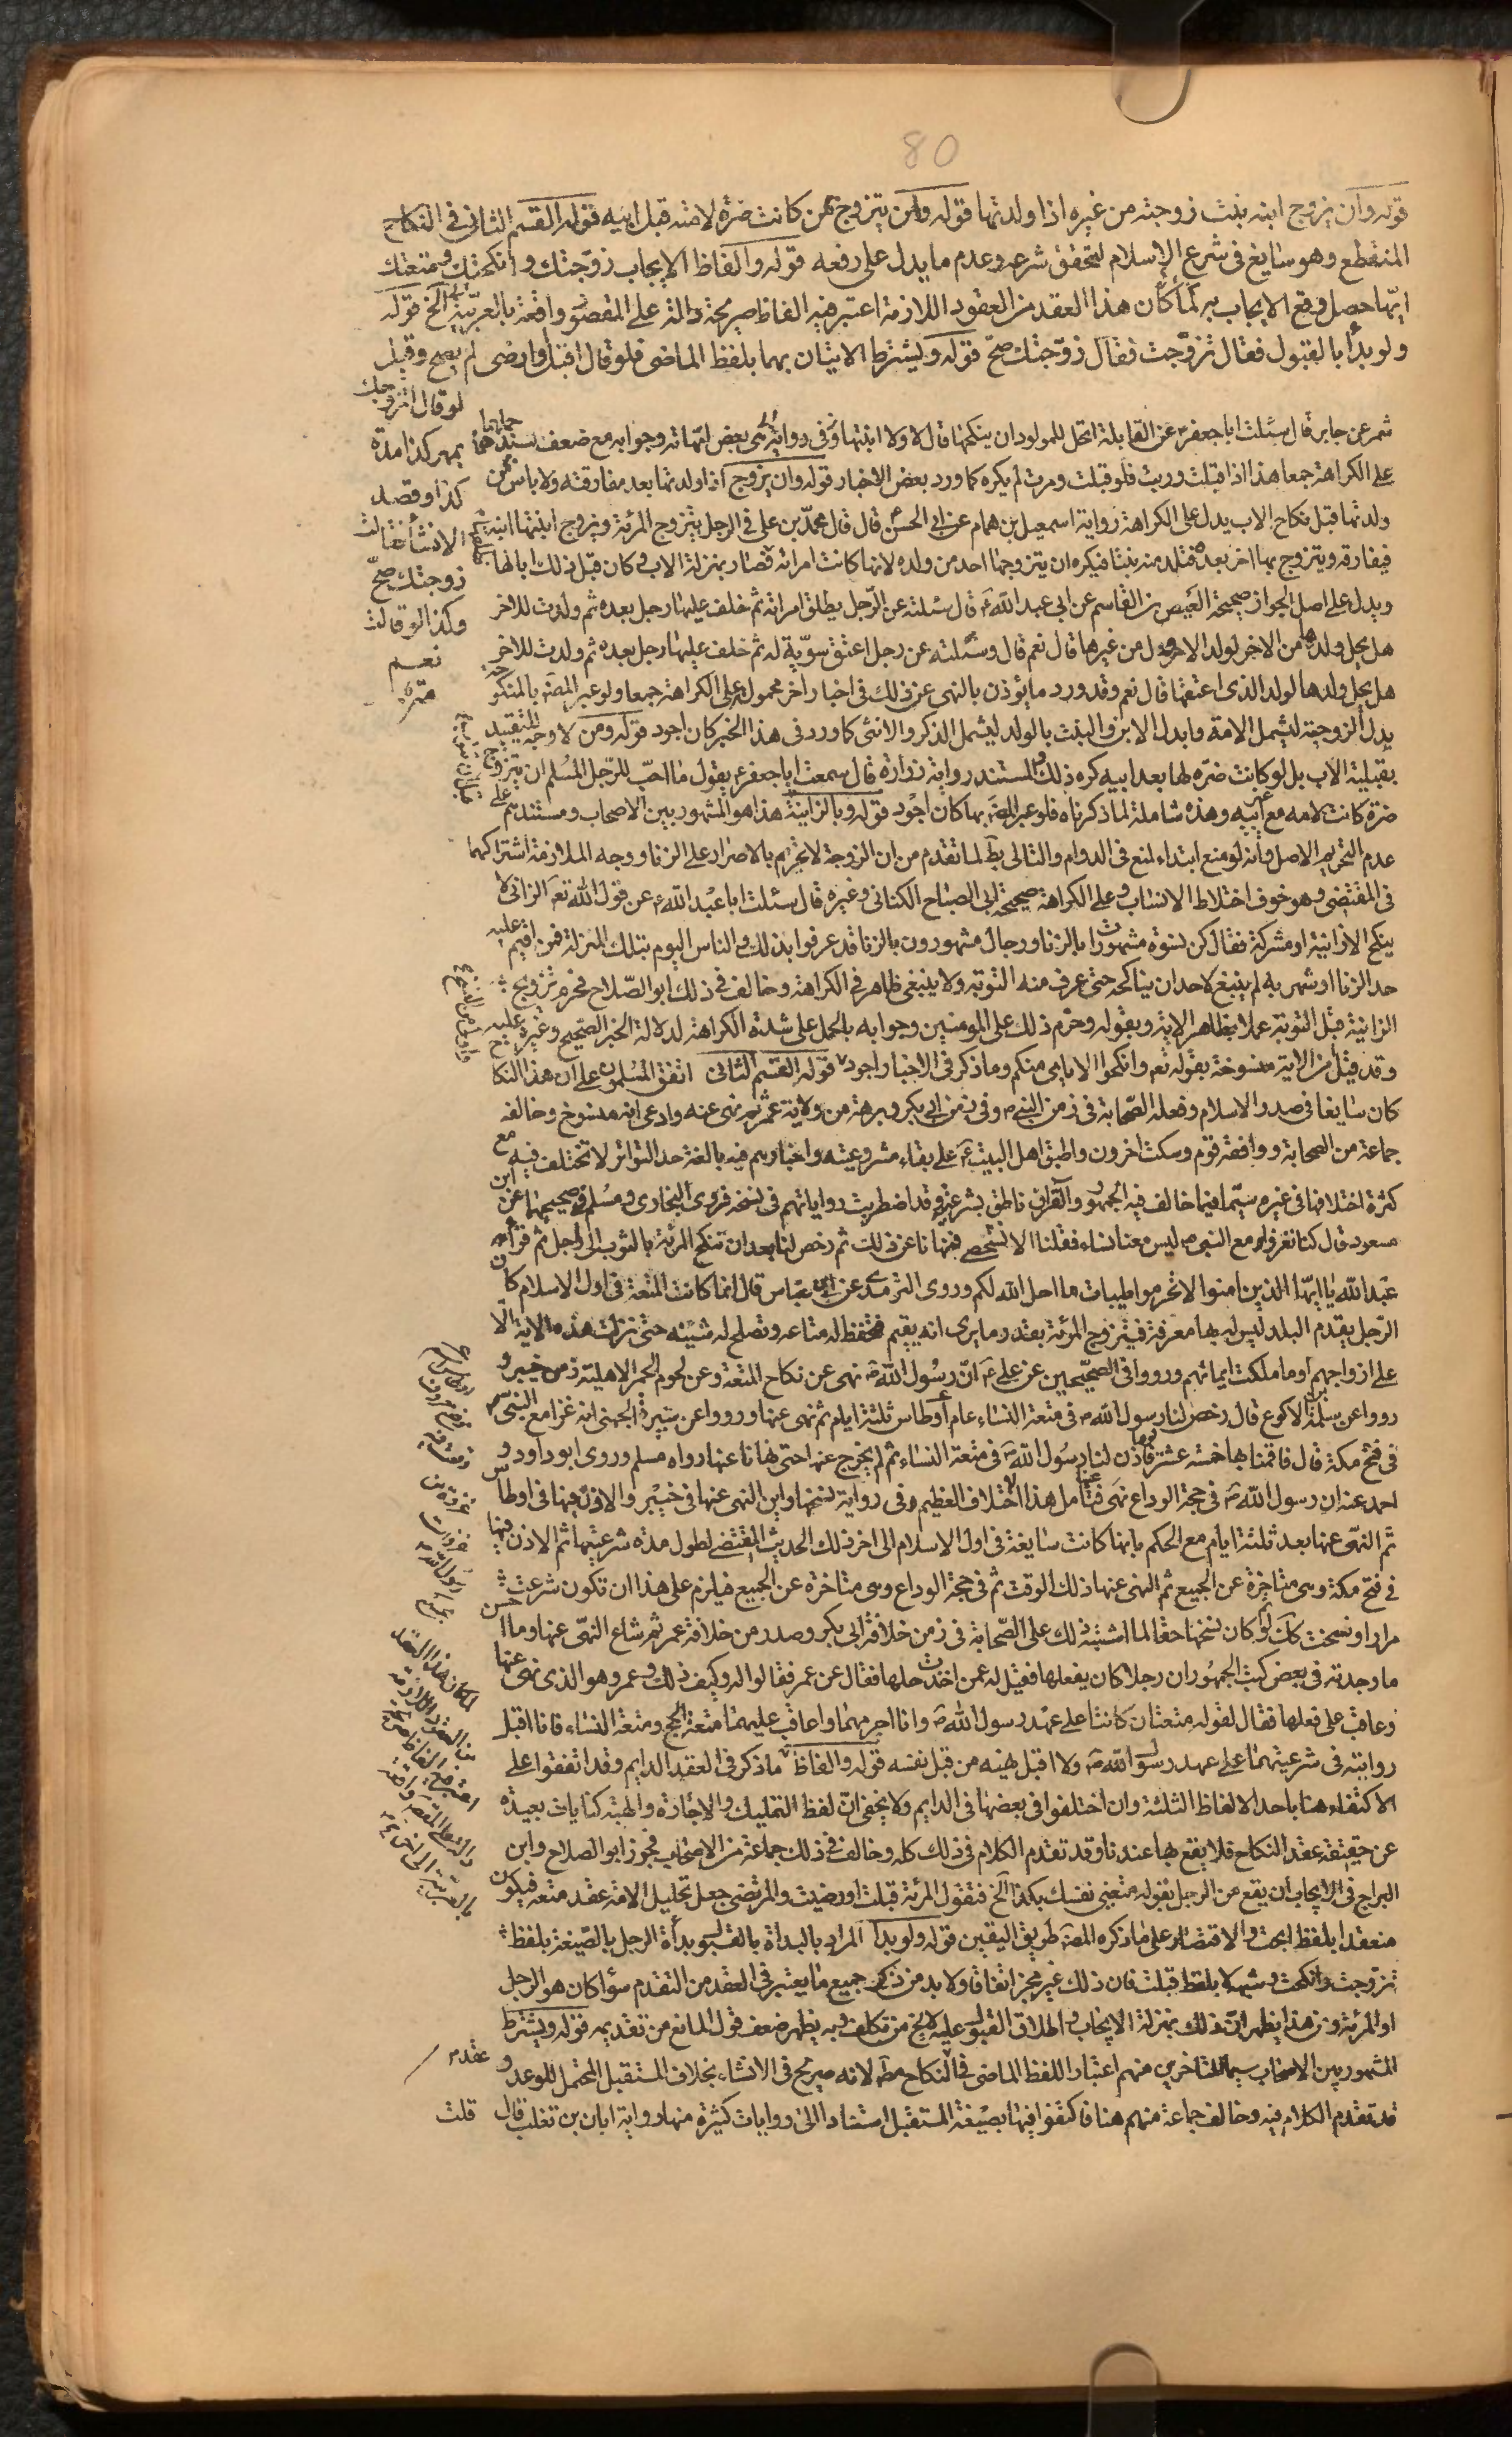 80
قوله وان يزوج ابنه بنت زوجته من غيره اذا ولدتها قوله وان يتزوج بمن كانت ضرة لامه قبل ابيه قوله القسم الثانى فى النكاح
المنقطع وهو سايغ فى شرع الاسلام لتحقق شرعه وعدم ما يدل على رفعه قوله والفاظ الايجاب زوّجتك وانكحتك ومتعتك
ايّها حصل وقع الايجاب به لمّا كان هذا العقد من العقود اللازمة اعتبر فيه الفاظ صريحة دالة على المقصود واقعة بالعربيّة الخ قوله
ولو بدأ بالقبول فقال تزوّجت فقال زوّجتك صحّ قوله ويشترط الاتيان بهما بلفظ الماضى فلو قال اقبل وارضى لم يصح وقيل
لو قال اتزوجك
بمهر كذا مدة
كذا وقصد
الانشاء فقالت
زوجتك صحّ
وكذا لو قالت
نعم
شمر عن جابر قال سئلت ابا جعفر ع عن القابلة اتحل للمولود ان ينكحها قال لا ولا ابنتها وفى رواية هى بعض امهاته وجوابه مع ضعف سندهما حملهما
على الكراهة جمعا هذا اذا قبلت وربت فلو قبلت ومرت لم يكره كما ورد بعض الاخبار قوله وان يزوج اذا ولدتها بعد مفارقته ولا باس بمن
ولدتها قبل نكاح الاب يدل على الكراهة رواية اسمعيل بن همام عن ابى الحسن قال قال محمد بن على فى الرجل يتزوج المرئة ويزوج ابنتها ابنه
فيفارقه ويتزوج بها اخر بعده فتلد منه بنتا فيكره ان يتزوجها احد من ولده لانها كانت امراته فصار بمنزلة الاب وكان قبل ذلك ابا لها
ويدل على اصل الجواز صحيحة العيص بن القاسم عن ابى عبد الله ع قال سئلته عن الرّجل يطلق امراته ثم خلف عليها رجل بعده ثم ولدت للاخر
هل يحل ولدها من الاخر لولد الاول من غيرها قال نعم قال وسئلته عن رجل اعتق سرّية له ثم خلف عليها رجل بعده ثم ولدت للاخر
هل يحل ولدها لولد الذى اعتقها قال نعم وقد ورد ما يؤذن بالنهى عن ذلك فى اخبار اخر محمولة على الكراهة جمعا ولو عبر المصنف بالمنكوحة
بدل الزوجة ليشمل الامة وابدل الابن والبنت بالولد ليشمل الذكر والانثى كما ورد فى هذا الخبر كان اجود قوله ومن لا وجه للتقييد
بقبلية الاب بل لو كانت ضرّه لها بعد ابيه كره ذلك والمستند رواية زرارة قال سمعت ابا جعفر ع يقول ما احبّ للرّجل المسلم ان يتزوج
ضرة كانت لامه مع غير ابيه وهذه شاملة لما ذكرناه فلو عبر المصنف بها كان اجود قوله وبالزانية هذا هو المشهور بين الاصحاب ومستندهم على
عدم التحريم الاصل وانه لو منع ابتداء لمنع فى الدوام والتالى بط لما تقدم من ان الزوجة لا تحرم بالاصرار على الزنا ووجه الملازمة اشتراكهما
فى المقتضى وهو خوف اختلاط الانساب وعلى الكراهة صحيحة ابى الصباح الكنانى وغيره قال سئلت ابا عبد الله ع عن قول الله تع الزانى لا
ينكح الا زانية او مشركة فقال كن نسوة مشهورات بالزنا ورجال مشهورون بالزنا قد عرفوا بذلك والناس اليوم بتلك المنزلة فمن اقيم عليه
حد الزنا او شهر به لم ينبغ لاحد ان يناكحه حتى عرف منه التوبة ولا ينبغى ظاهر فى الكراهة وخالف فى ذلك ابو الصّلاح فحرم تزويج
الزانية قبل التوبة عملا بظاهر الاية وبقوله وحرّم ذلك على المومنين وجوابه بالحمل على شدة الكراهة لدلالة الخبر الصحيح وغيره عليه
وقد قيل ان الاية منسوخة بقوله تع وانكحوا الايامى منكم وما ذكر فى الاخبار اجود قوله القسم الثانى اتفق المسلمون على ان هذا النكاح
كان سايغا فى صدر الاسلام وفعله الصّحابة فى زمن النبى ص وفى زمن ابى بكر وبرهة من ولاية عمر ثم نهى عنه وادعى انه منسوخ وخالفه
جماعة من الصحابة ووافقه قوم وسكت اخرون واطبق اهل البيت ع على بقاء مشروعيته واخبارهم فيه بالغة حد التواتر لا تختلف فيه مع
كثرة اختلافها فى غيره سيّما فيما خالف فيه الجمهور والقرآن ناطق بشرعيته وقد اضطربت رواياتهم فى نسخه فروى البخارى ومسلم فى صحيحهما عن ابن
مسعود قال كنا نغزوا مع النبى ص ليس معنا نساء فقلنا الا نستخصى فنهانا عن ذلك ثم رخص لنا بعد ان ننكح المرئة بالثوب الى اجل ثم قرأ
عبد الله يا ايّها الذين امنوا لا تحرموا طيبات ما احل الله لكم وروى الترمذى عن ابن عباس قال انما كانت المتعة فى اول الاسلام كان
الرّجل يقدم البلد ليس له بها معرفة فيتزوج المرئة بقدر ما يرى انه يقيم فتحفظ له متاعه وتصلح له شيئه حتى نزلت هذه الاية الّا
على ازواجهم او ما ملكت ايمانهم ورووا فى الصحيحين عن على ع انّ رسول الله ص نهى عن نكاح المتعة وعن لحوم الحمر الاهلية زمن خيبر و
رووا عن سلمة بن الاكوع قال رخص لنا رسول الله ص فى متعة النساء عام اوطاس ثلثة ايام ثم نهى عنها ورووا عن سبرة الجهنى انه غزا مع النبى ص
فى فتح مكة قال فاقمنا بها خمسة عشر يوما فاذن لنا رسول الله ص فى متعة النساء ثم لم يخرج عنها حتى نهانا عنها رواه مسلم وروى ابو داود و
احمد عنه ان رسول الله ص فى حجة الوداع نهى عنها فتامل هذا الاختلاف العظيم فى رواية نسخها واين النهى عنها فى خيبر والاذن فيها فى اوطاس
ثم النهى عنها بعد ثلثة ايام مع الحكم بانها كانت سايغة فى اول الاسلام الى اخر ذلك الحديث المقتضى لطول مدة شرعيتها ثم الاذن فيها
فى فتح مكة وهى متاخرة عن الجميع ثم النهى عنها ذلك الوقت ثم فى حجة الوداع وهى متاخرة عن الجميع فيلزم على هذا ان تكون شرعت
مرارا ونسخت كك ولو كان نسخها حقا لما اشتبه ذلك على الصّحابة فى زمن خلافة ابى بكر وصدر من خلافة عمر ثم شاع النهى عنها وما احسن
ما وجدته فى بعض كتب الجمهور ان رجلا كان يفعلها فقيل له عمن اخذت حلها فقال عن عمر فقالوا له وكيف ذلك وعمر هو الذى نهى عنها
وعاقب على فعلها فقال لقوله متعتان كانتا على عهد رسول الله ص وانا احرمهما واعاقب عليهما متعة الحج ومتعة النساء فانا اقبل
روايته فى شرعيتهما على عهد رسول الله ص ولا اقبل نهيه من قبل نفسه قوله والفاظ ما ذكر فى العقد الدايم وقد اتفقوا على
الاكتفاء هنا باحد الالفاظ الثلثة وان اختلفوا فى بعضها فى الدايم ولا يخفى انّ لفظ التمليك والاجارة والهبة كنايات بعيدة
عن حقيقة عقد النكاح فلا يقع بها عندنا وقد تقدم الكلام فى ذلك كله وخالف فى ذلك جماعة من الاصحاب فجوز ابو الصلاح وابن
البراج فى الايجاب ان يقع من الرجل بقوله متعينى نفسك بكذا الخ فتقول المرئة قبلت او رضيت والمرتضى جعل تحليل الامة عقد متعة فيكون
منعقدا بلفظ ابحت والاقتصار على ما ذكره المصنف طريق اليقين قوله ولو بدأ المراد بالبداة بالقبول بدأة الرجل بالصّيغة بلفظ
تزوجت وانكحت وشبههما لا بلفظ قبلت فان ذلك غير مجز اتفاقا ولا بد من ذكر جميع ما يعتبر فى العقد من التقدم سوا كان هو الرجل
او المرئة ومن هذا يظهر انّ ذلك بمنزلة الايجاب واطلاق القبول عليه لا يخ من تكلف وبه يظهر ضعف قول المانع من تقديمه قوله ويشترط
المشهور بين الاصحاب سيما المتاخرين منهم اعتبار اللفظ الماضى فى النكاح مط لانه صريح فى الانشاء بخلاف المستقبل المحتمل للوعد و عقدم
قد تقدم الكلام فيه وخالف جماعة منهم هنا فاكتفوا فيها بصيغة المستقبل استنادا الى روايات كثيرة منها رواية ابان بن تغلب قال
قلت